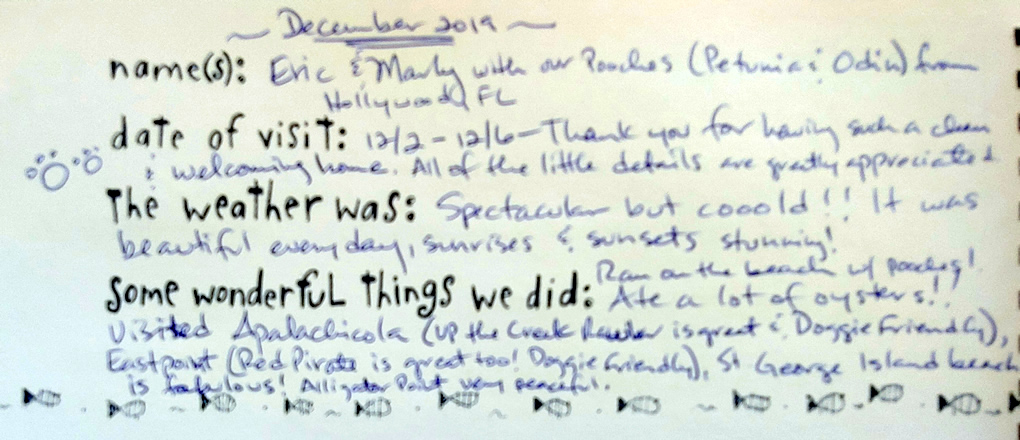 ~ December 2019 ~
name(s): Eric & Marly with our Pooches (Petunia & Odin) from
Hollywood, FL
date of visit: 12/2 - 12/6 - Thank you for having such a clean
& welcoming home. All of the little details are greatly appreciated
The weather was: Spectacular but cooold!! It was
beautiful everyday, sunrises & sunsets stunning!
Ran on the beach w/ pooches!
Some wonderful things we did: Ate a lot of oysters!!
Visited Apalachicola (Up the Creek Raw bar is great & Doggie Friendly),
Eastpoint (Red Pirate is great too! Doggie Friendly), St George Island beach
is fabulous! Alligator Point very peaceful.